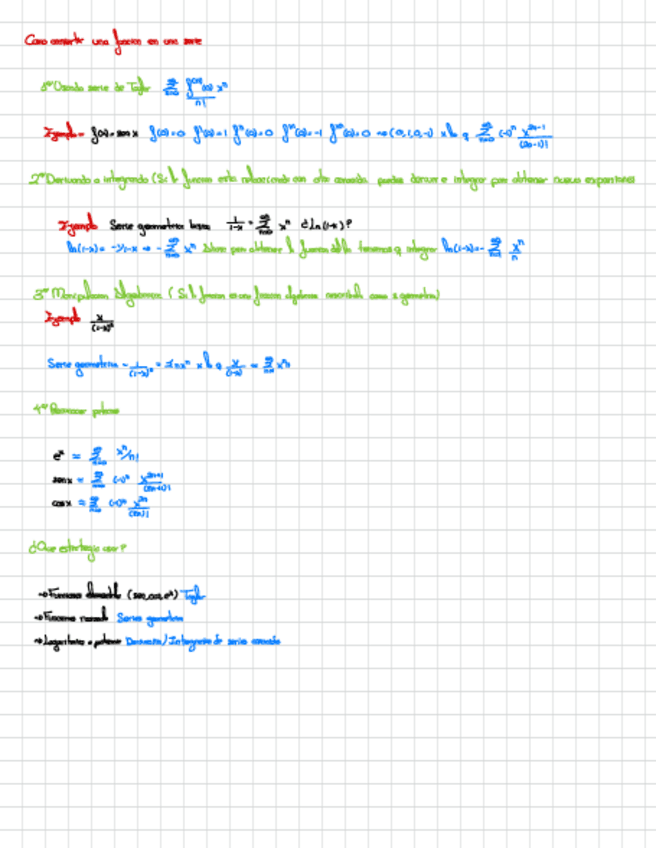 Como convertir una funcion en una serie
1º Usando serie de Taylor ∑ n=0 ∞ f⁽ⁿ⁾(0) xⁿ / n!
Ejemplo - f(x)= sen x f(0)=0 f'(0)=1 f''(0)=0 f'''(0)=-1 f⁽⁴⁾(0)=0 → (0,1,0,-1) x lo q ∑ n=0 ∞ (-1)ⁿ x²ⁿ⁻¹/(2n-1)!
2º Derivando o integrando (Si la funcion esta relacionada con otra conocida puedes derivar e integrar para obtener nuevas expansiones
Ejemplo Serie geometrica basica 1/1-x = ∑ n=0 ∞ xⁿ ¿Ln(1-x)?
ln(1-x)= -1/1-x → - ∑ n=0 ∞ xⁿ para obtener la funcion tenemos q integrar ln(1-x)= - ∑ xⁿ/n
3º Manipulacion Algebraica (Si la funcion es una funcion algebraica como s geometrica)
Ejemplo x/(1-x)²
Serie geometrica - 1/(1-x)² = ∑nxⁿ x lo q x/(1-x) = ∑ xⁿn
4º Reconocer
eˣ = ∑ n=0 ∞ xⁿ/n!
senx = ∑ n=0 ∞ (-1)ⁿ x²ⁿ⁺¹/(2n+1)!
cosx = ∑ n=0 ∞ (-1)ⁿ x²ⁿ/(2n)!
¿Que estartegia usar?
→ Funciones (sen,cos,eˣ) Taylor
→ Funciones Series geometrica
→ Logaritmos o Derivacion/Integracion de series conocidas